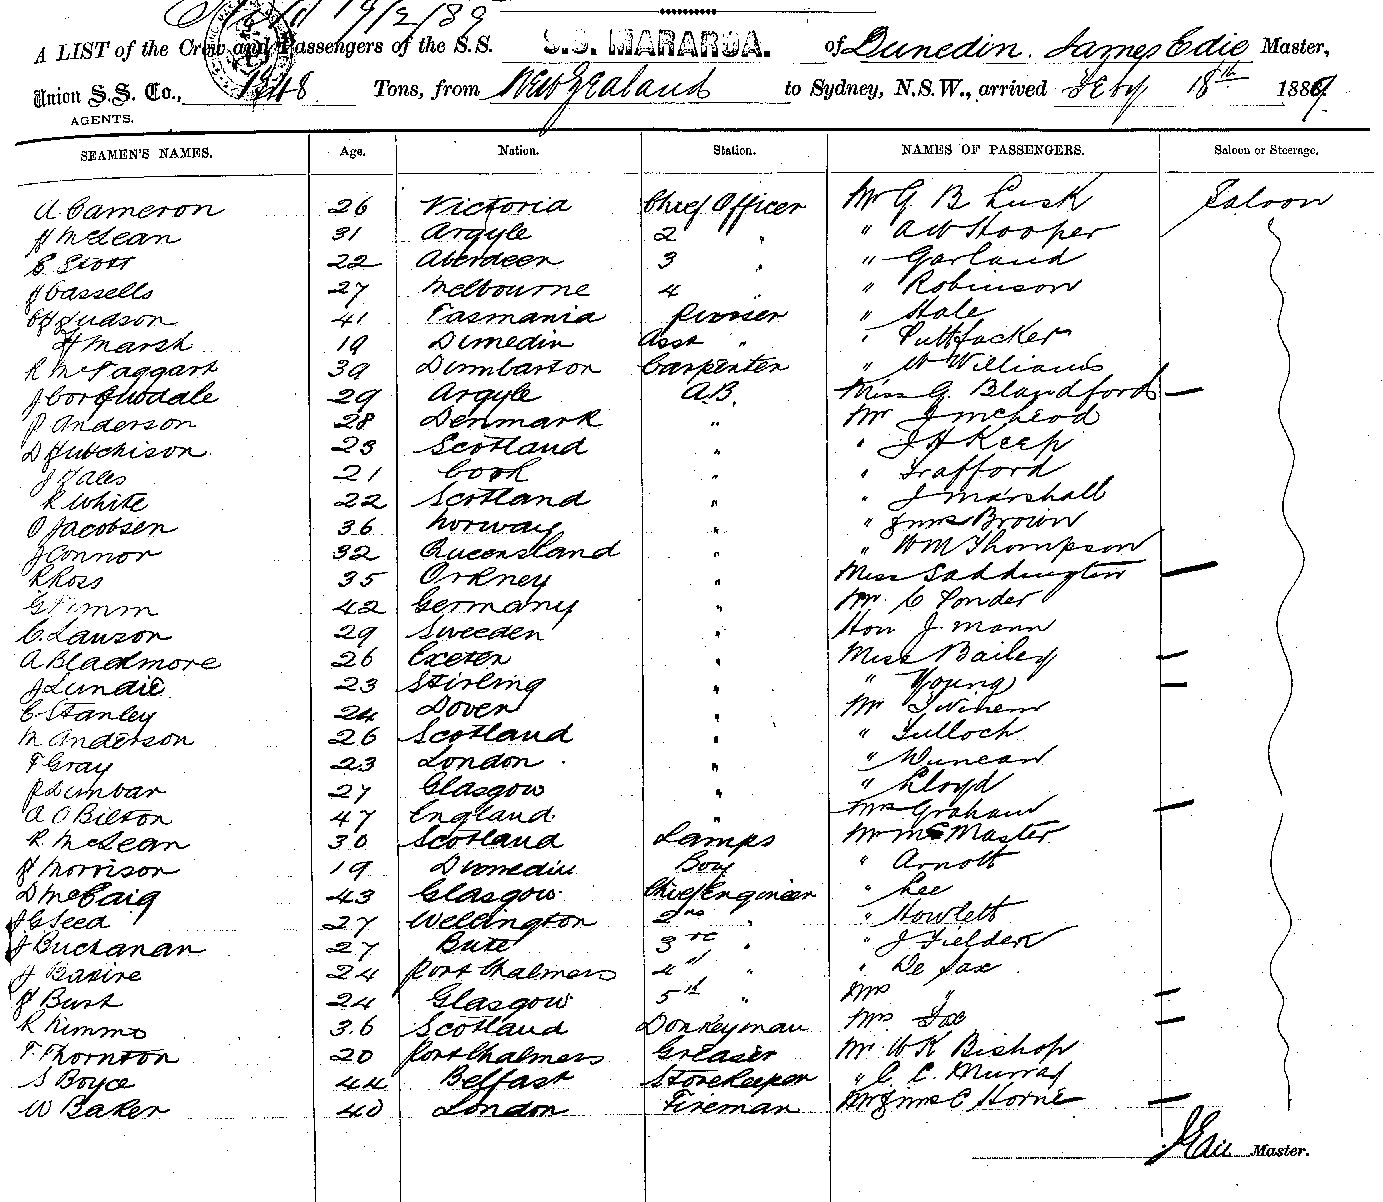 19/2/89
A LIST of the Crew and Passengers of the S.S. S.S. MARAROA. of Dunedin. James Edie Master,
Union S.S. Co., 1248 Tons, from New Zealand to Sydney, N.S.W., arrived Feby 18th 1889
AGENTS.
SEAMEN'S NAMES. Age. Nation. Station. NAMES OF PASSENGERS. Saloon or Steerage.
A Cameron 26 Victoria Chief Officer Mr G. B Lusk Saloon
H McLean 31 Argyle 2 " " A W Hooper
E Scott 22 Aberdeen 3 " " Garland
J Cassells 27 Melbourne 4 " " Robinson
Judson 41 Tasmania Purser " Hale
H Marsh 19 Dunedin Asst " " Puttfacker
R McTaggart 39 Dumbarton Carpenter " W Williams
J Corquodale 29 Argyle A.B. Miss G. Blandford —
P Anderson 28 Denmark " Mr J McLeod
D Hutchison 23 Scotland " " J H Keep
J Jales 21 Cook " " Trafford
R White 22 Scotland " " J Marshall
O Jacobsen 36 Norway " " Jnms Brown
J Connor 32 Queensland " " W M Thompson
R Ross 35 Orkney " Miss Saddington —
G Timm 42 Germany " Mr. C Ponder
C. Lawson 29 Sweeden " Hon J. Mann
A Bladmore 26 Exeter " Miss Bailey —
J Lundie 23 Stirling " " Young —
C Stanley 24 Dover " Mr Twinem
M Anderson 26 Scotland " " Tulloch
F Gray 23 London " " Duncan
P Dunbar 27 Glasgow " " Lloyd
A O Bilton 47 England " Mrs Graham —
R McLean 30 Scotland Lamps Mr McMaster
H Morrison 19 Dunedin Boy " Arnott
D McCaig 43 Glasgow Chief Engineer " Lee
J C Seed 27 Wellington 2nd " " Howlett
J Buchanan 27 Bute 3rd " " J Fielder
J Basire 24 Port Chalmers 4th " " De Sax
H Burt 24 Glasgow 5th " Mrs " —
R Kimmo 36 Scotland Donkeyman Mrs. Fox —
F Thornton 20 Port Chalmers Greaser Mr W K Bishop
S Boyce 44 Belfast Storekeeper " C. C. Murray
W Baker 40 London Fireman C Horne —
J Edie Master.